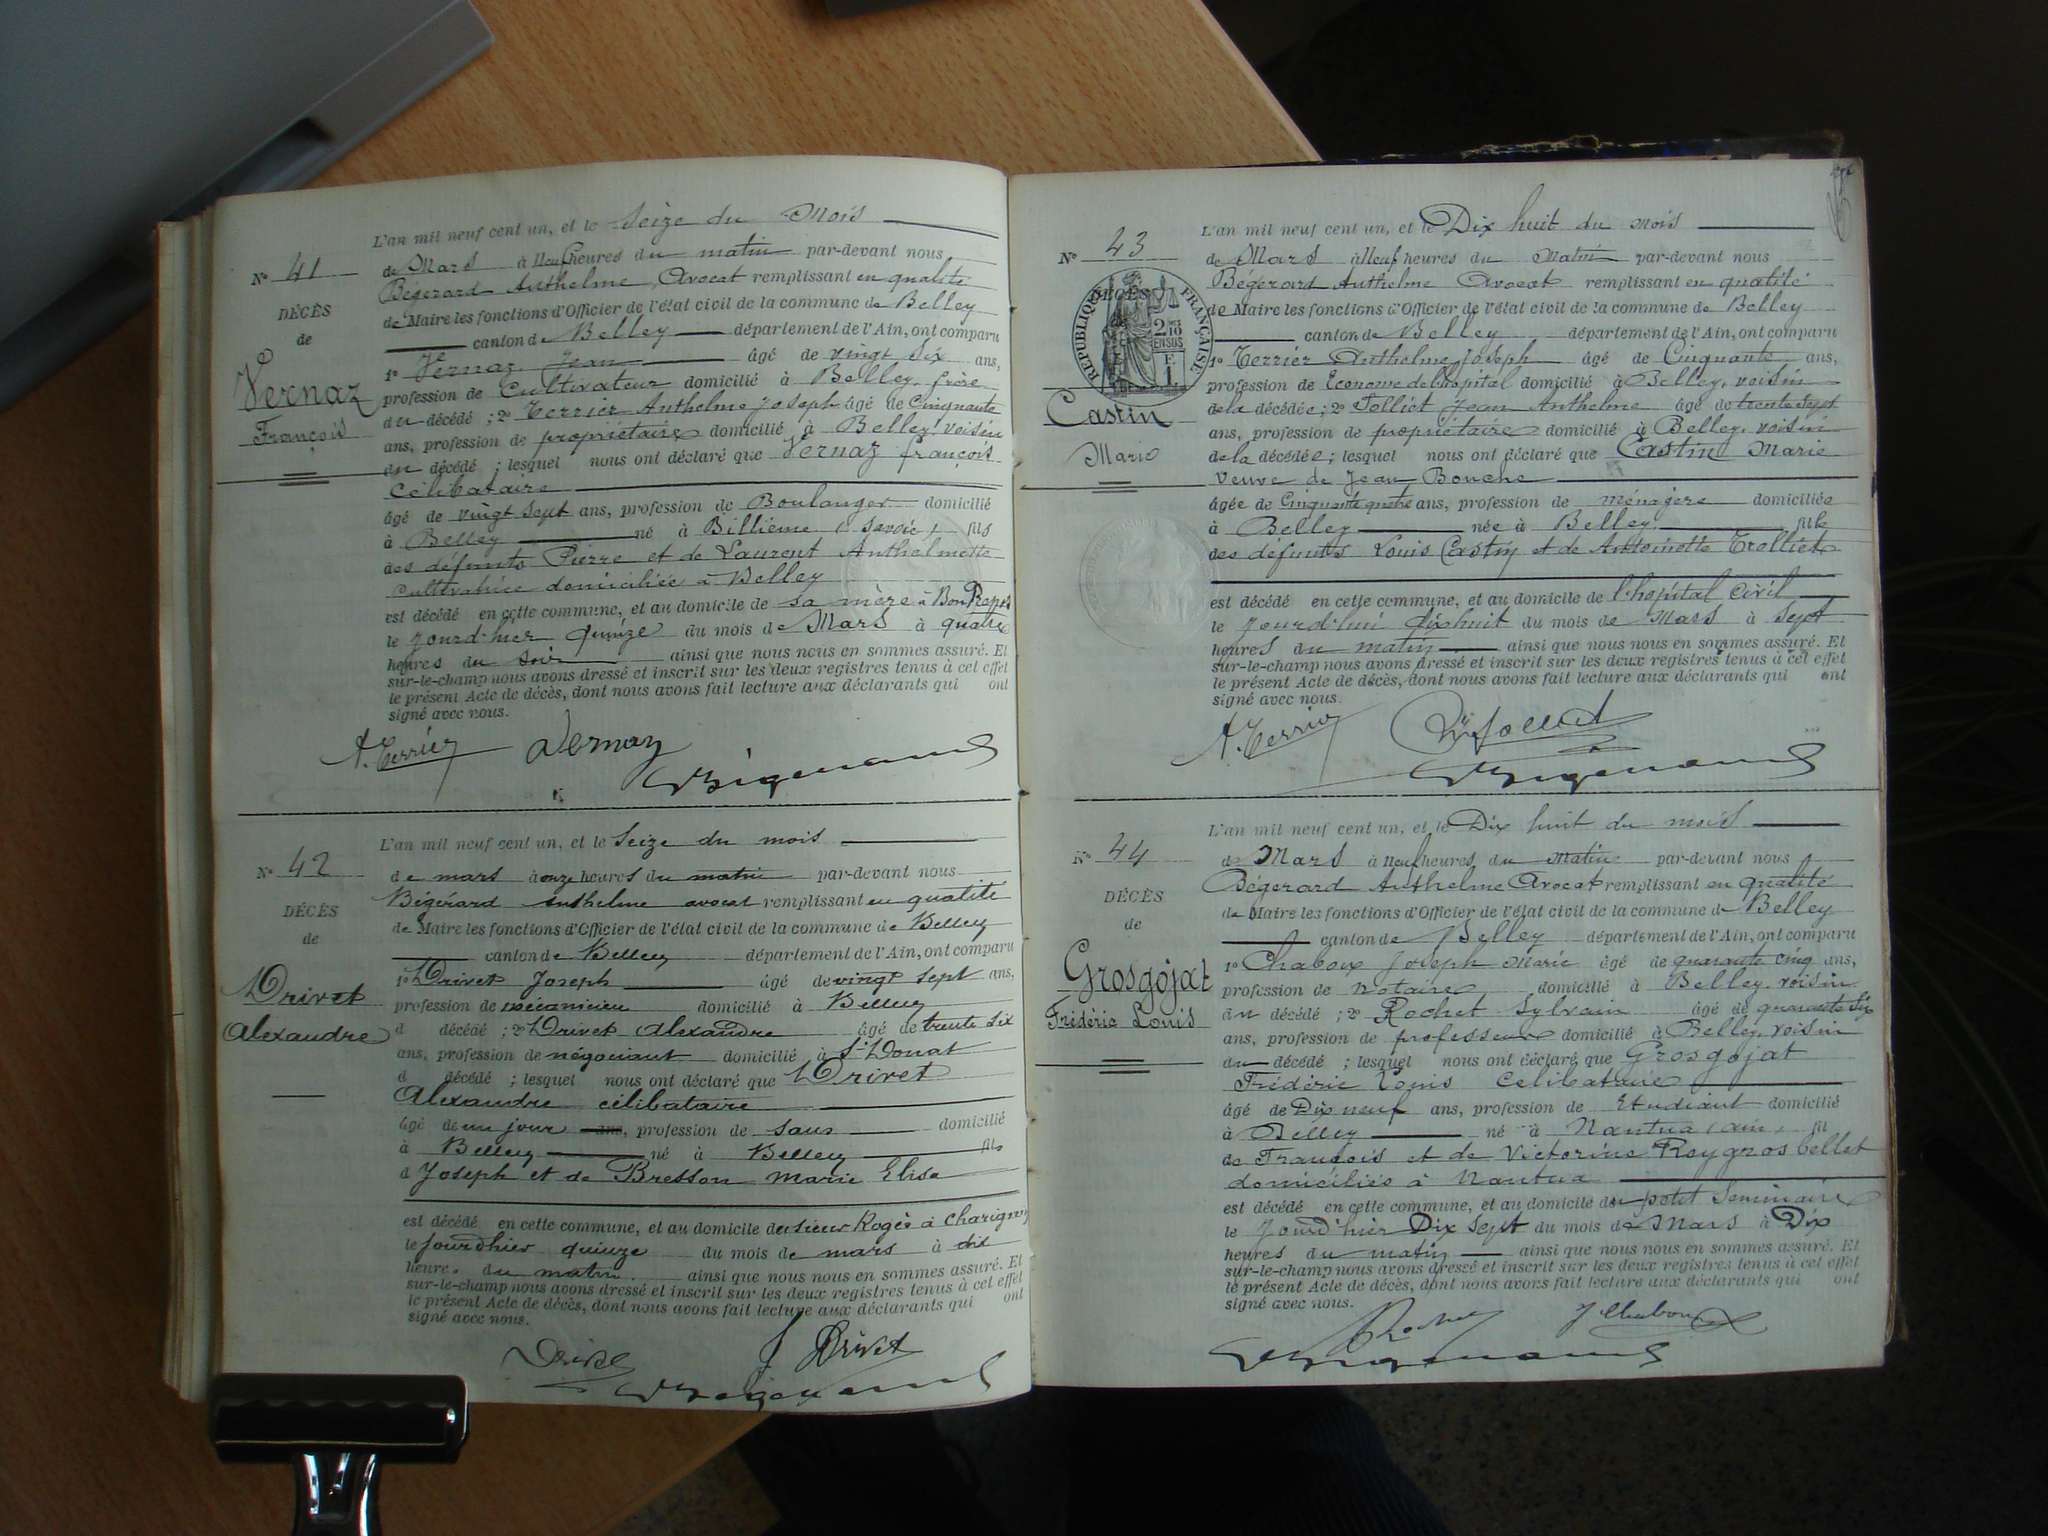 L'an mil neuf cent un, et le Seize du Mois
N° 41
de Mars à neuf heures du matin par-devant nous
Bégerard Anthelme, Avocat remplissant en qualité
DÉCÈS
de Maire les fonctions d'Officier de l'état civil de la commune de Belley
de
canton de Belley département de l'Ain, ont comparu
1° Vernaz Jean âgé de vingt six ans,
Vernaz
profession de Cultivateur domicilié à Belley, frère
du décédé ; 2° Terrier Anthelme Joseph âgé de Cinquante
François
ans, profession de propriétaire domicilié à Belley, voisin
du décédé ; lesquel nous ont déclaré que Vernaz françois
Célibataire
âgé de vingt sept ans, profession de Boulanger domicilié
à Belley né à Billième (Savoie) fils
des défunts Pierre et de Laurent Anthelmette
Cultivatrice domiciliée à Belley
est décédé en cette commune, et au domicile de sa mère à Bon Repos
le jourd'hier quinze du mois de Mars à quatre
heures du soir ainsi que nous nous en sommes assuré. Et
sur-le-champ nous avons dressé et inscrit sur les deux registres tenus à cet effet
le présent Acte de décès, dont nous avons fait lecture aux déclarants qui ont
signé avec nous.
A. Terrier Vernaz
L'an mil neuf cent un, et le Seize du mois
N° 42
de mars à onze heures du matin par-devant nous
Bégérard Anthelme avocat remplissant en qualité
DÉCÈS
de Maire les fonctions d'Officier de l'état civil de la commune de Belley
de
canton de Belley département de l'Ain, ont comparu
1° Drivet Joseph âgé de vingt sept ans,
Drivet
profession de mécanicien domicilié à Belley
Alexandre
d décédé ; 2° Drivet Alexandre âgé de trente six
ans, profession de négociant domicilié à St Donat
d décédé ; lesquel nous ont déclaré que Drivet
Alexandre célibataire
âgé de un jour ans, profession de sans domicilié
à Belley né à Belley fils
d Joseph et de Bresson Marie Elisa
est décédé en cette commune, et au domicile du sieur Rogès à Charignin
le jourd'hier quinze du mois de mars à dix
heures du matin ainsi que nous nous en sommes assuré. Et
sur-le-champ nous avons dressé et inscrit sur les deux registres tenus à cet effet
le présent Acte de décès, dont nous avons fait lecture aux déclarants qui ont
signé avec nous.
Drivet J Drivet
L'an mil neuf cent un, et le Dix huit du mois
N° 43
de Mars à Neuf heures du Matin par-devant nous
Bégerard Anthelme Avocat remplissant en qualité
DÉCÈS
RÉPUBLIQUE FRANÇAISE
de Maire les fonctions d'Officier de l'état civil de la commune de Belley
canton de Belley département de l'Ain, ont comparu
1° Terrier Anthelme Joseph âgé de Cinquante ans,
profession de Econome de l'hôpital domicilié à Belley, voisin
Castin
de la décédée ; 2° Jolliet Jean Anthelme âgé de trente sept
ans, profession de propriétaire domicilié à Belley, voisin
Marie
de la décédée ; lesquel nous ont déclaré que Castin Marie
veuve de Jean Bouche
âgée de Cinquante quatre ans, profession de ménagère domiciliée
à Belley née à Belley fille
des défunts Louis Castin et de Antoinette Trolliet
est décédé en cette commune, et au domicile de l'hôpital Civil
le jourd'hui dix huit du mois de Mars à sept
heures du matin ainsi que nous nous en sommes assuré. Et
sur-le-champ nous avons dressé et inscrit sur les deux registres tenus à cet effet
le présent Acte de décès, dont nous avons fait lecture aux déclarants qui ont
signé avec nous.
A. Terrier
L'an mil neuf cent un, et le Dix huit du mois
N° 44
de Mars à Neuf heures du Matin par-devant nous
Bégerard Anthelme Avocat remplissant en qualité
DÉCÈS
de Maire les fonctions d'Officier de l'état civil de la commune de Belley
de
canton de Belley département de l'Ain, ont comparu
1° Chaboux Joseph Marie âgé de quarante cinq ans,
Grosgojat
profession de notaire domicilié à Belley, voisin
Frédéric Louis
du décédé ; 2° Rochet Sylvain âgé de quarante six
ans, profession de professeur domicilié à Belley, voisin
du décédé ; lesquel nous ont déclaré que Grosgojat
Frédéric Louis Célibataire
âgé de Dix neuf ans, profession de Etudiant domicilié
à Belley né à Nantua (ain) fil
de François et de Victorine Reygrobellet
domiciliés à Nantua
est décédé en cette commune, et au domicile du petit Séminaire
le jourd'hier Dix Sept du mois de Mars à Dix
heures du matin ainsi que nous nous en sommes assuré. Et
sur-le-champ nous avons dressé et inscrit sur les deux registres tenus à cet effet
le présent Acte de décès, dont nous avons fait lecture aux déclarants qui ont
signé avec nous.
Rochet J Chaboux